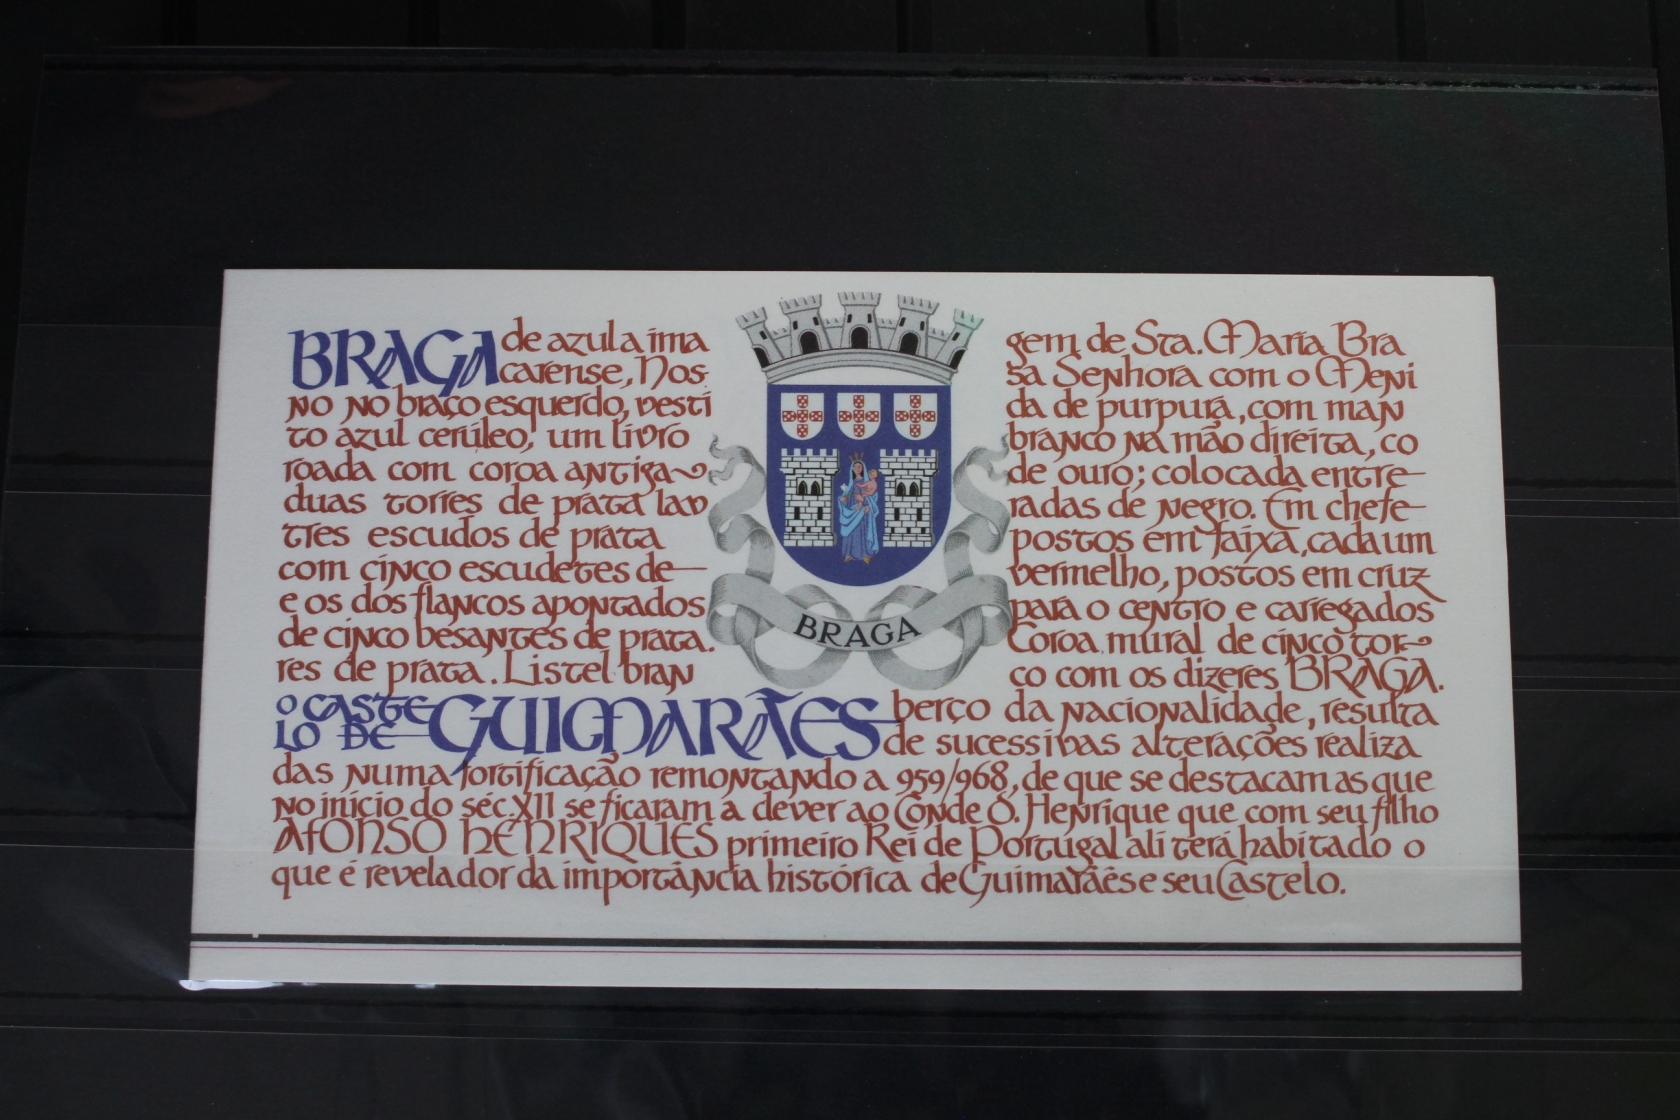 BRAGA de azul a ima gem de Sta. Maria Bra
carense, Nos- sa Senhora com o Meni
no no braço esquerdo, vesti da de purpura, com man
to azul cerúleo; um livro branco na mão direita, co
roada com coroa antiga de ouro; colocada entre
duas torres de prata lav radas de negro. Em chefe
tres escudos de prata postos em faixa, cada um
com cinco escudetes de vermelho, postos em cruz
e os dos flancos apontados para o centro e carregados
BRAGA
de cinco besantes de prata. Coroa mural de cinco tor-
res de prata. Listel bran co com os dizeres BRAGA.
O CASTELO DE GUIMARÃES berço da nacionalidade, resulta
de sucessivas alterações realiza
das numa fortificação remontando a 959/968, de que se destacam as que
no início do séc. XII se ficaram a dever ao Conde D. Henrique que com seu filho
AFONSO HENRIQUES primeiro Rei de Portugal ali terá habitado o
que é revelador da importância histórica de Guimarães e seu Castelo.